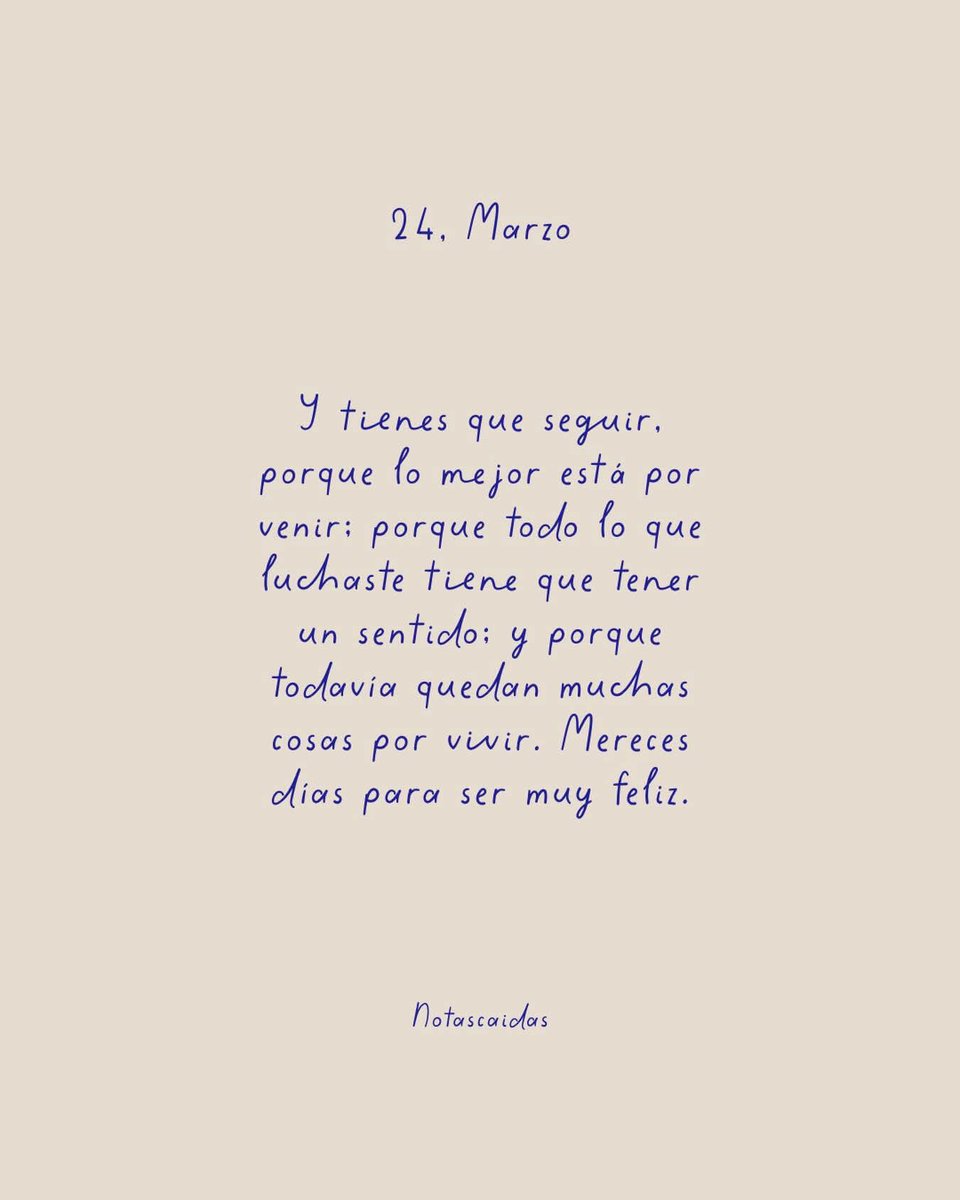 24, Marzo
Y tienes que seguir,
porque lo mejor está por
venir; porque todo lo que
luchaste tiene que tener
un sentido; y porque
todavía quedan muchas
cosas por vivir. Mereces
días para ser muy feliz.
Notascaidas